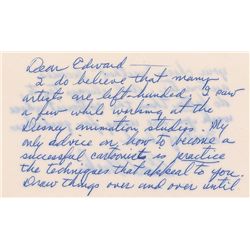 Dear Edward —
I do believe that many
artists are left-handed. I saw
a few while working at the
Disney animation studios. My
only advice on how to become a
successful cartoonist is practice
the techniques that appeal to you.
Draw things over and over until